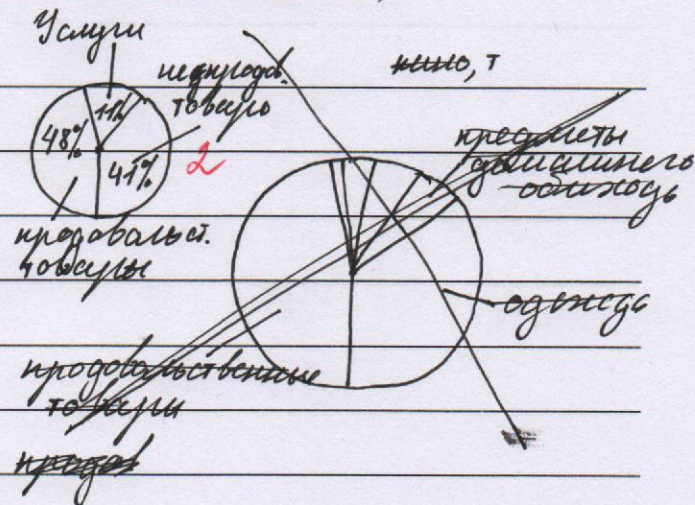 Услуги
непродов.
товары
11%
48%
41%
2
продовольст.
товары
кино, т
предметы
домашнего
обихода
одежда
продовольственные
товары
продов